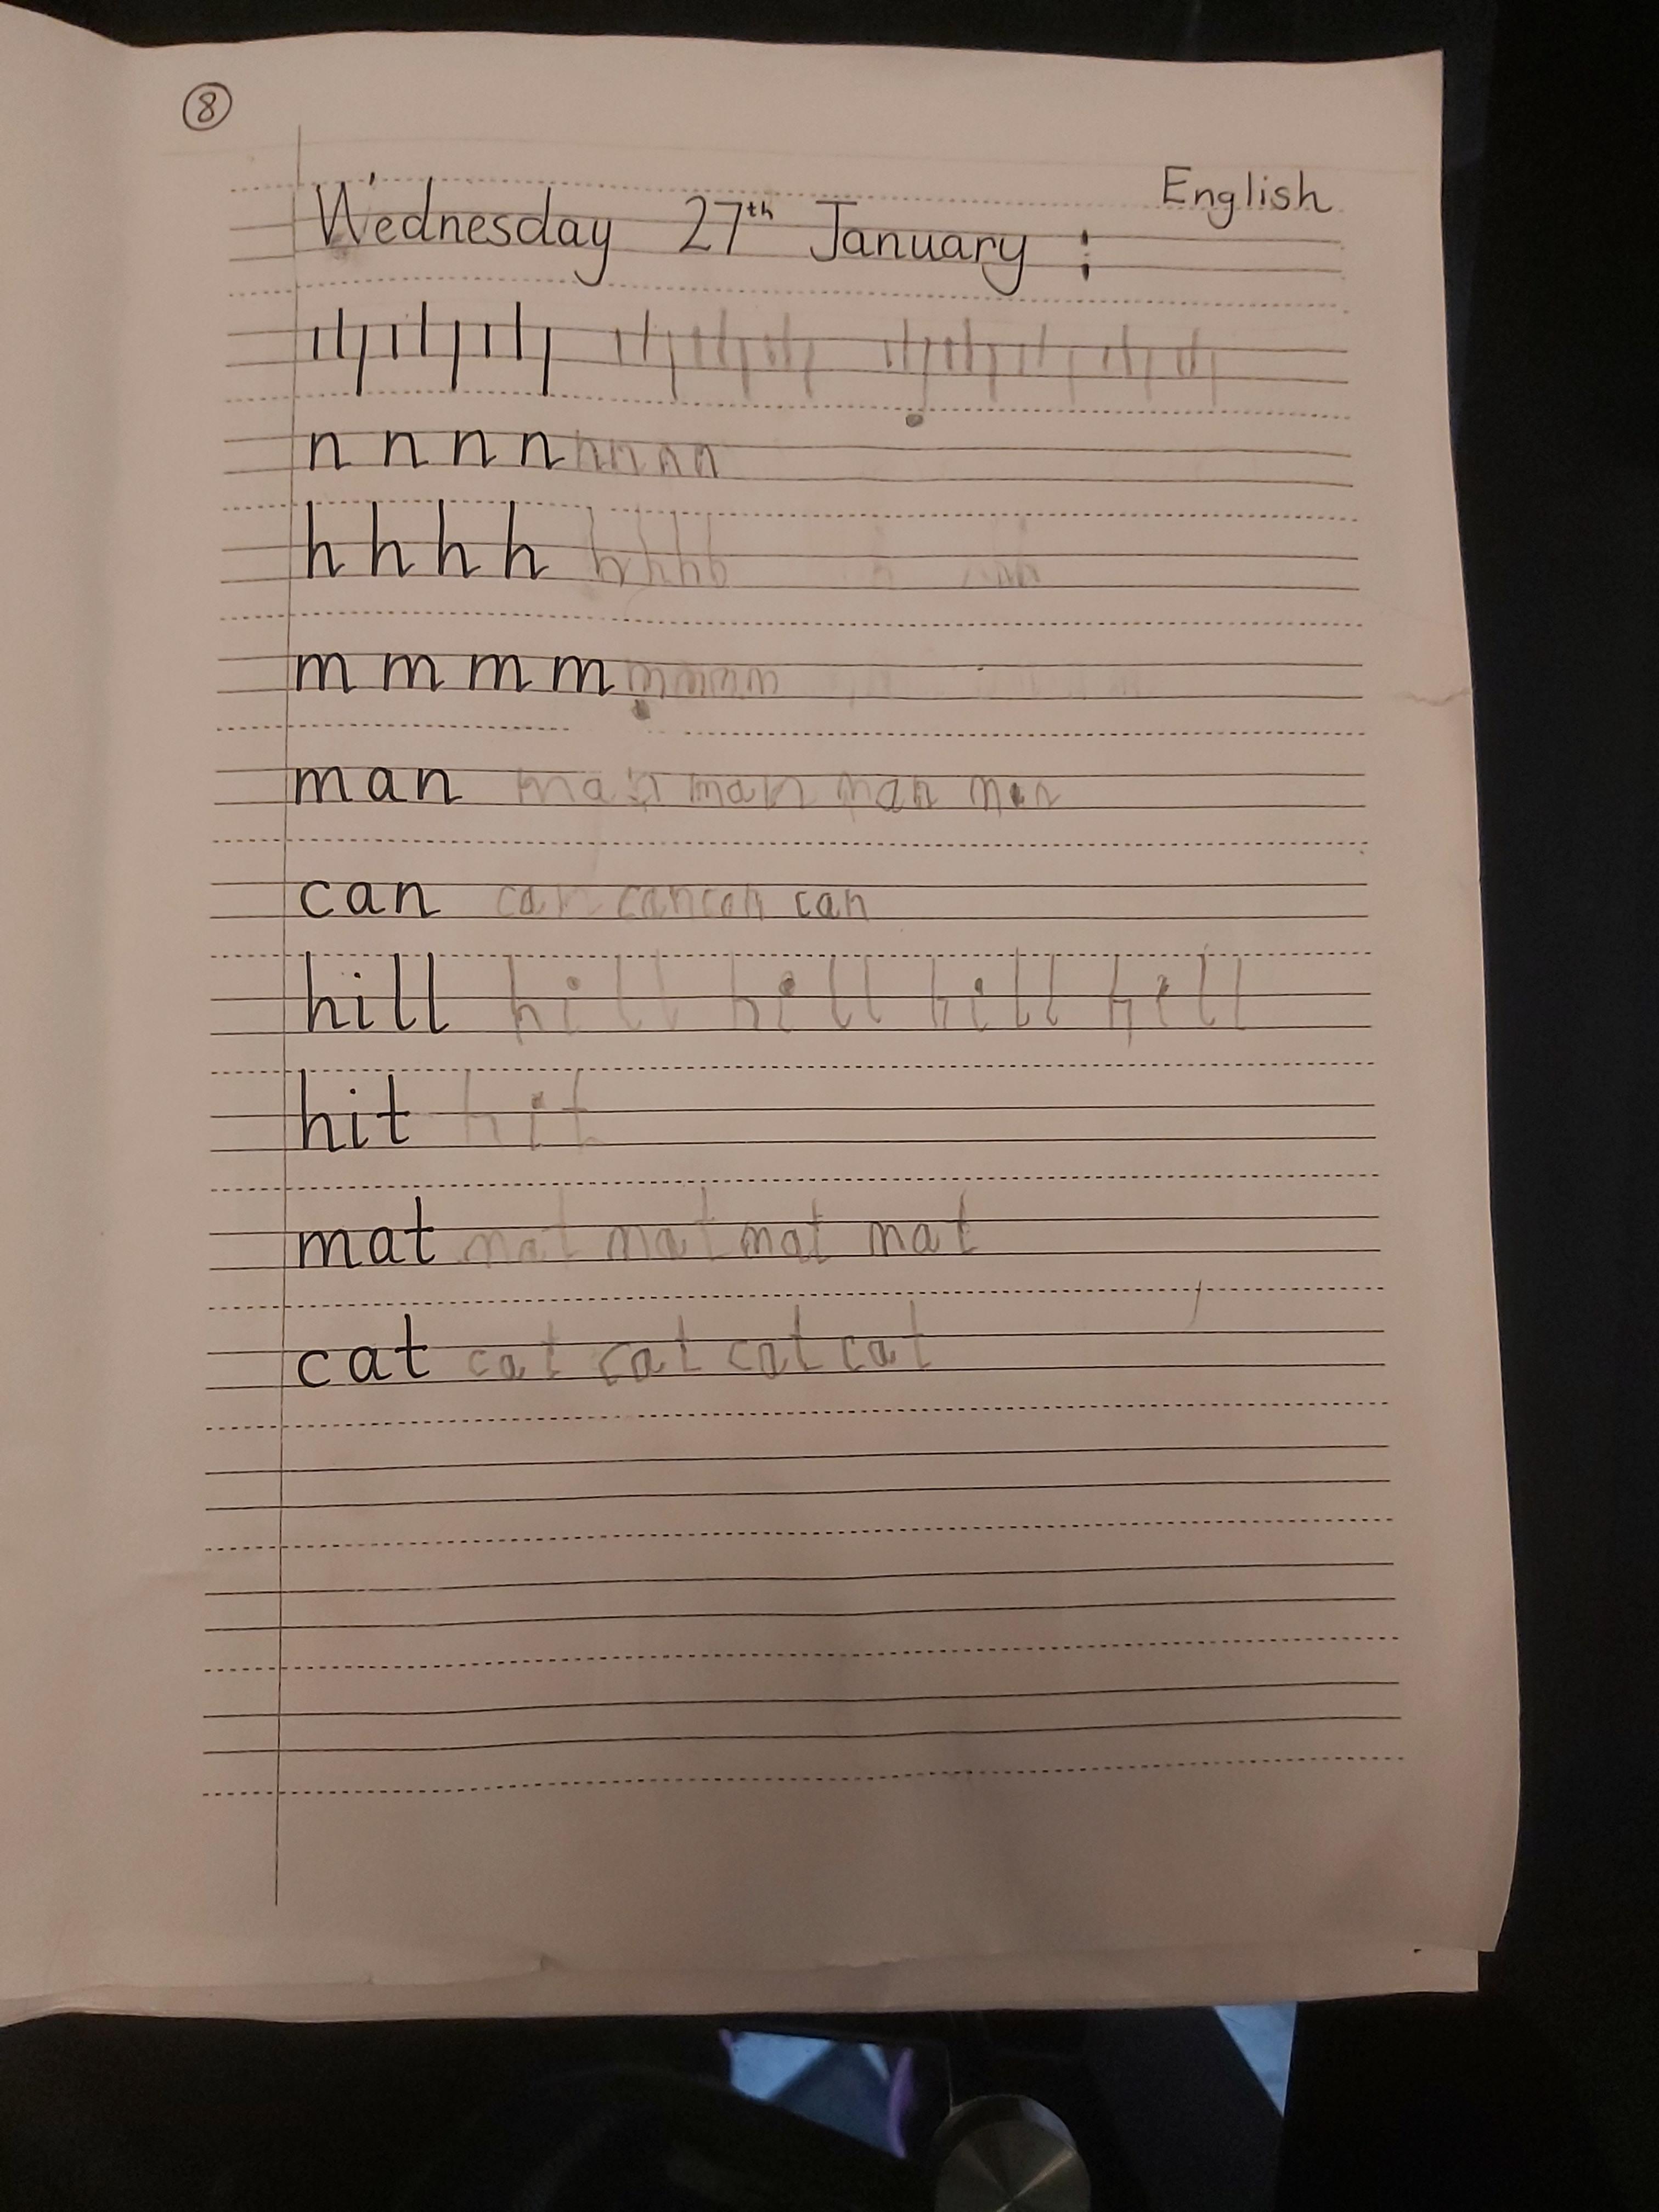 8
English
Wednesday 27th January :
n n n n n n n n
h h h h h h h h
m m m m m m m m
man man man man man
can can can can can
hill hill hill hill hill
hit hit
mat mat mat mat mat
cat cat cat cat cat